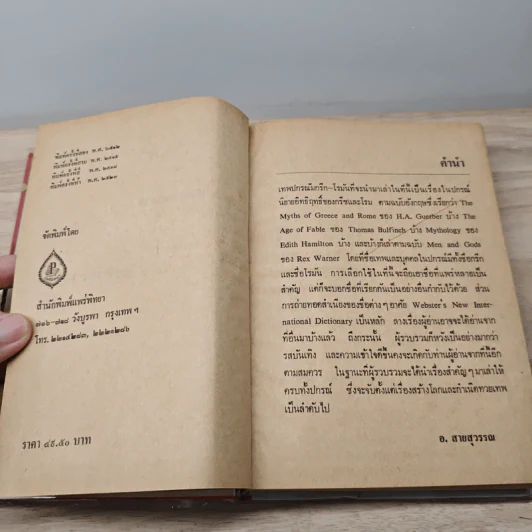 พิมพ์ครั้งที่สอง พ.ศ. ๒๕๑๒
พ.ศ.
พ.ศ.
พ.ศ.
จัดพิมพ์โดย
สำนักพิมพ์แพร่พิทยา
๗๑๖-๗๑๘ วังบูรพา กรุงเทพ ฯ
โทร.
ราคา ๔๕.๕๐ บาท
คำนำ
เทพปกรณัมกรีก-โรมันที่จะนำมาเล่าในที่นี้เป็นเรื่องในปกรณ์
นิยายอิทธิฤทธิ์ของกรีซและโรม ตามฉบับอังกฤษซึ่งเรียกว่า The
Myths of Greece and Rome ของ H.A. Guerber บ้าง The
Age of Fable ของ Thomas Bulfinch บ้าง Mythology ของ
Edith Hamilton บ้าง และบางทีเล่าตามฉบับ Men and Gods
ของ Rex Warner โดยที่ชื่อเทพและบุคคลในปกรณัมมีทั้งชื่อกรีก
และชื่อโรมัน การเลือกใช้ในที่นี้จะถือเอาชื่อที่แพร่หลายเป็น
สำคัญ แต่ก็จะบอกชื่อที่เรียกกันเป็นอย่างอื่นกำกับไว้ด้วย ส่วน
การถ่ายทอดสำเนียงของชื่อต่างๆ อาศัย Webster's New Inter-
national Dictionary เป็นหลัก ลางเรื่องผู้อ่านอาจจะได้อ่านจาก
ที่อื่นมาบ้างแล้ว ถึงกระนั้น ผู้รวบรวมก็หวังเป็นอย่างมากว่า
รสบันเทิง และความเข้าใจดีขึ้นคงจะเกิดกับท่านผู้อ่านจากที่นี้อีก
ตามสมควร ในฐานะที่ผู้รวบรวมจะได้นำเรื่องสำคัญๆ มาเล่าให้
ครบทั้งปกรณ์ ซึ่งจะจับตั้งแต่เรื่องสร้างโลกและกำเนิดทวยเทพ
เป็นลำดับไป
อ. สายสุวรรณ